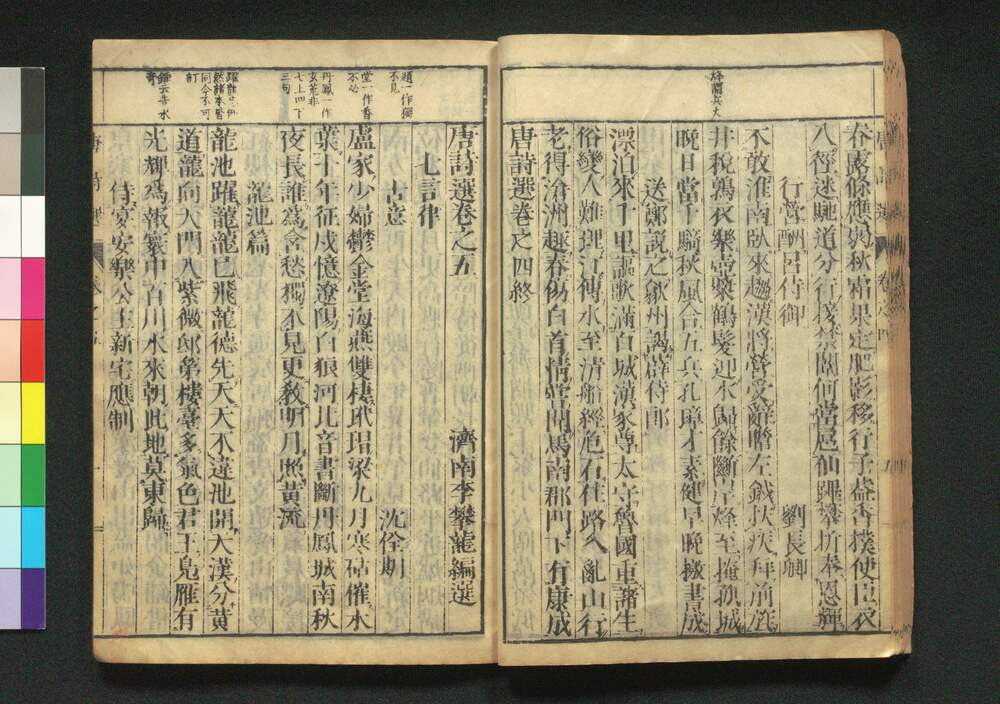 烽謂兵火
春露條應弱秋霜果定肥影移行子蓋香撲使臣衣
入徑迷馳道分行接禁闈何當扈仙蹕攀折奉恩輝
行營酬呂侍御
劉長卿
不敢淮南臥來趨漢將營受辭瞻左鉞扶疾拜前旌
井稅鶉衣樂壺漿鶴髮迎水歸餘斷岸烽至掩孤城
晚日當千騎秋風合五兵孔璋才素健早晚檄書成
送鄭說之歙州謁薛侍郎
漂泊來千里謳歌滿百城漢家尊太守魯國重諸生
俗變人難理江傳水至清船經危石住路入亂山行
老得滄洲趣春傷白首情嘗聞馬南郡門下有康成
唐詩選卷之四終
唐詩選卷之五
濟南李攀龍編選
七言律
古意
沈佺期
盧家少婦鬱金堂海燕雙棲玳瑁梁九月寒砧催木
葉十年征戍憶遼陽白狼河北音書斷丹鳳城南秋
夜長誰爲含愁獨不見更教明月照黃流
龍池篇
龍池躍龍龍已飛龍德先天天不違池開天漢分黃
道龍向天門入紫微邸第樓臺多氣色君王鳧雁有
光輝爲報寰中百川水來朝此地莫東歸
侍宴安樂公主新宅應制
堂一作香
丹鳳一作